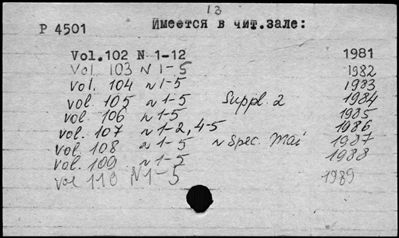 13
Р 4501 Имеется в чит.зале:
Vol.102 N 1-12 1981
Vol. 103 N 1-5 1982
Vol. 104 N 1-5 1983
Vol. 105 N 1-5 Suppl. 2 1984
Vol. 106 N 1-5 1985
Vol. 107 N 1-2, 4-5 1986
Vol. 108 N 1-5 N Spec. Mai 1987
Vol. 109 N 1-5 1988
Vol 110 N 1-5 1989